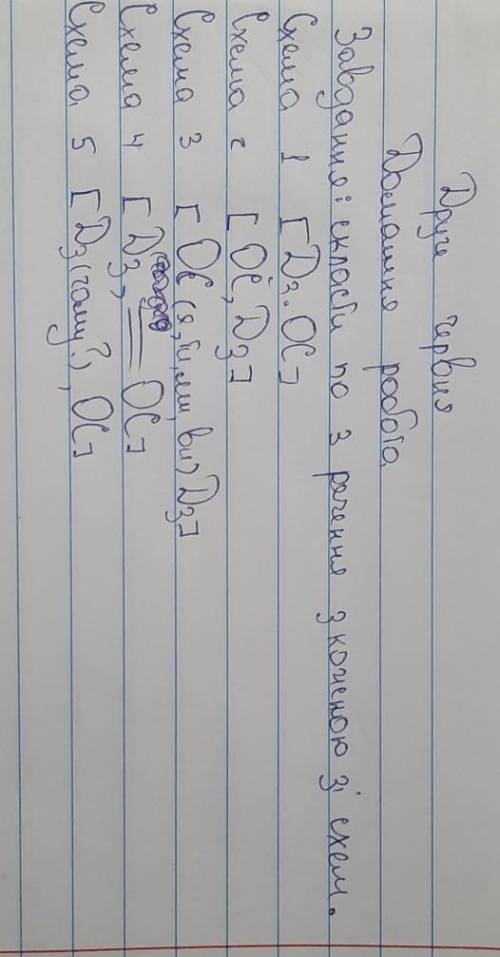 Друге червня
Домашня робота
Завдання: скласти по 3 речення з кожною зі схем.
Схема 1 [Dз. ОС]
Схема 2 [ОС, Dз]
Схема 3 [ОС (я, ти, ми, ви) Dз]
Схема 4 [Dз, ОС]
Схема 5 [Dз (чому?), ОС]